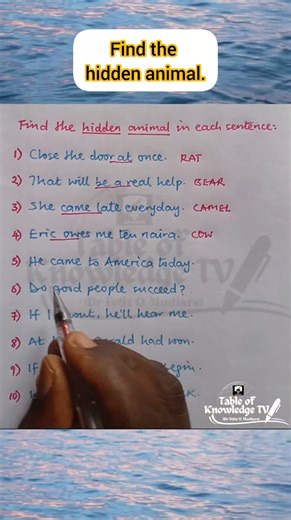 Find the
hidden animal.
Find the hidden animal in each sentence:
1) Close the door at once. RAT
2) That will be a real help. BEAR
3) She came late everyday. CAMEL
4) Eric owes me ten naira. COW
5) He came to America today.
6) Do good people succeed?
7) If I out, he'll hear me.
8) At had won.
9) If
10)
Table of
Knowledge TV
Table of
Knowledge TV